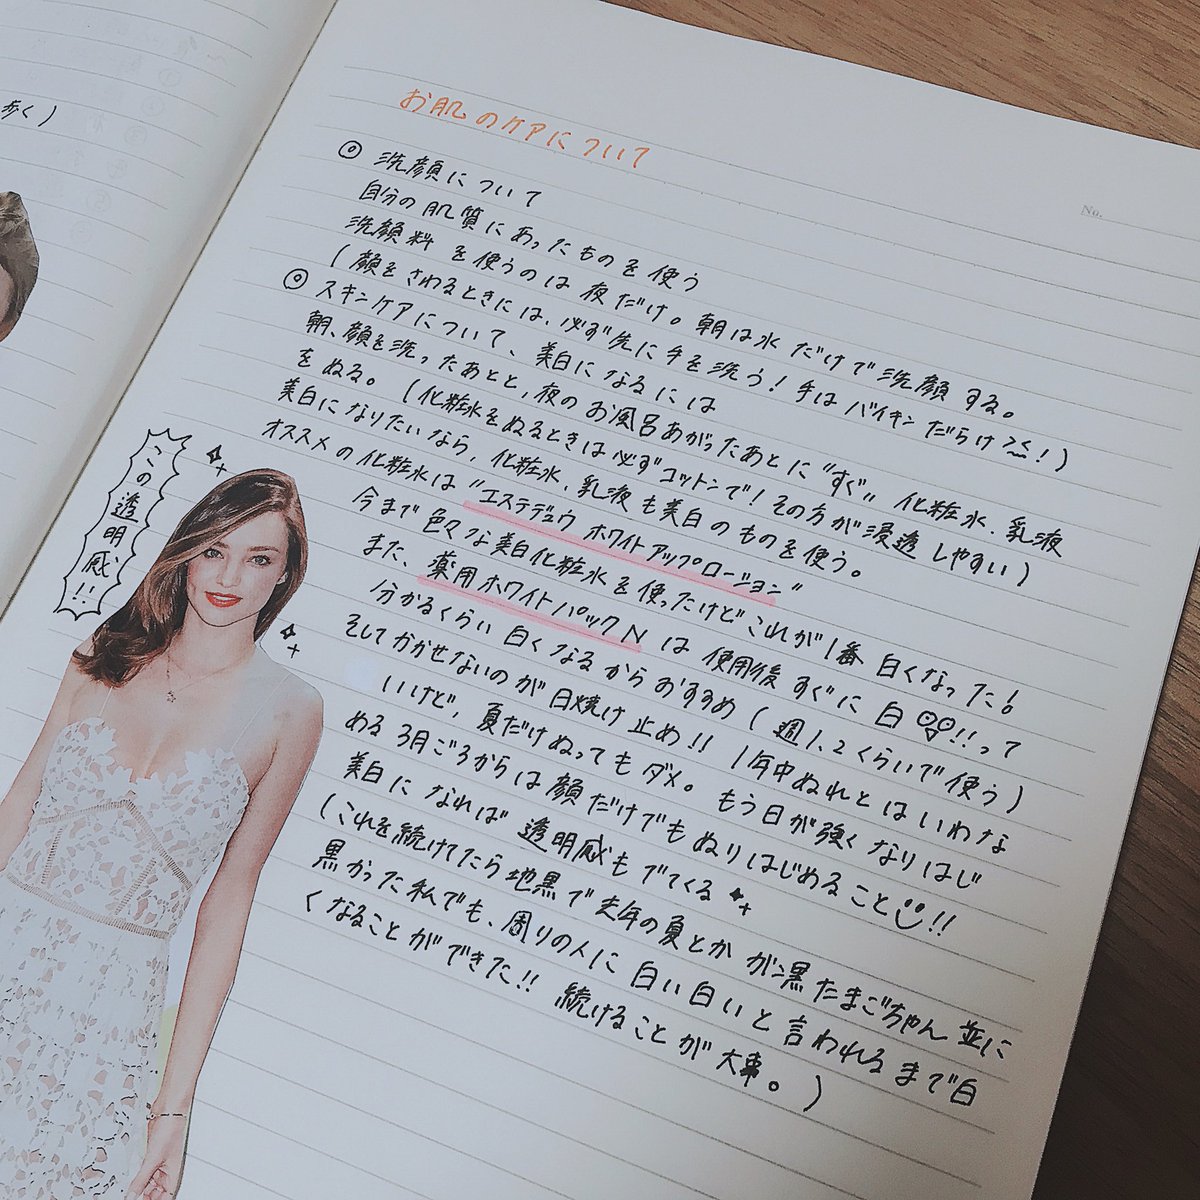 歩く)
No.
お肌のケアについて
◎ 洗顔について
自分の肌質にあったものを使う
洗顔料を使うのは夜だけ。朝は水だけで洗顔する。
(顔をさわるときには、必ず先に手を洗う!手はバイキンだらけ!)
◎ スキンケアについて、美白になるには
朝、顔を洗ったあとと、夜のお風呂あがったあとに"すぐ"化粧水、乳液
をぬる。(化粧水をぬるときは必ずコットンで!その方が浸透しやすい)
美白になりたいなら、化粧水、乳液も美白のものを使う。
オススメの化粧水は"エステデュウ ホワイトアップローション"
今まで色々な美白化粧水を使ったけどこれが1番白くなった!
また、薬用ホワイトパックNは使用後すぐに白!!って
分かるくらい白くなるからおすすめ(週1、2くらいで使う)
そしてかかせないのが日焼け止め!! 1年中ぬれとはいわな
いけど、夏だけぬってもダメ。もう日が強くなりはじ
める3月ごろからは顔だけでもぬりはじめること!!
美白になれば透明感もでてくる
(これを続けてたら地黒で去年の夏とかガン黒たまごちゃん並に
黒かった私でも、周りの人に白い白いと言われるまで白
くなることができた!! 続けることが大事。)
この透明感!!